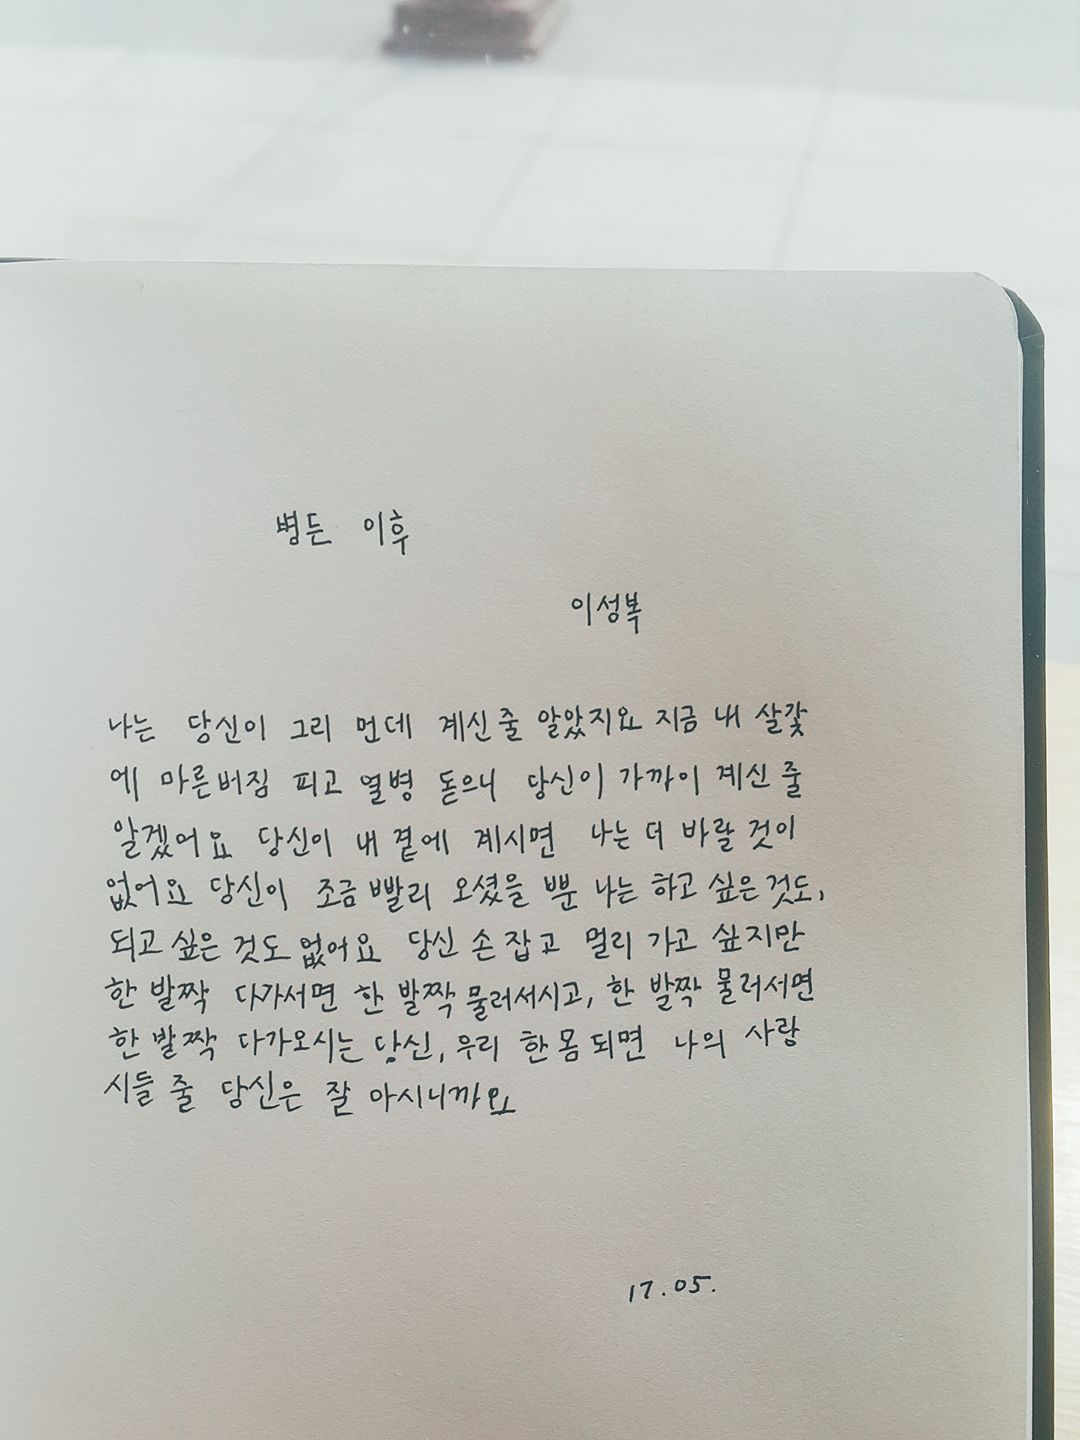 병든 이후
이성복
나는 당신이 그리 먼데 계신 줄 알았지요 지금 내 살갗
에 마른버짐 피고 열병 돋으니 당신이 가까이 계신 줄
알겠어요 당신이 내 곁에 계시면 나는 더 바랄 것이
없어요 당신이 조금 빨리 오셨을 뿐 나는 하고 싶은 것도,
되고 싶은 것도 없어요 당신 손 잡고 멀리 가고 싶지만
한 발짝 다가서면 한 발짝 물러서시고, 한 발짝 물러서면
한 발짝 다가오시는 당신, 우리 한몸 되면 나의 사랑
시들 줄 당신은 잘 아시니까요
17.05.